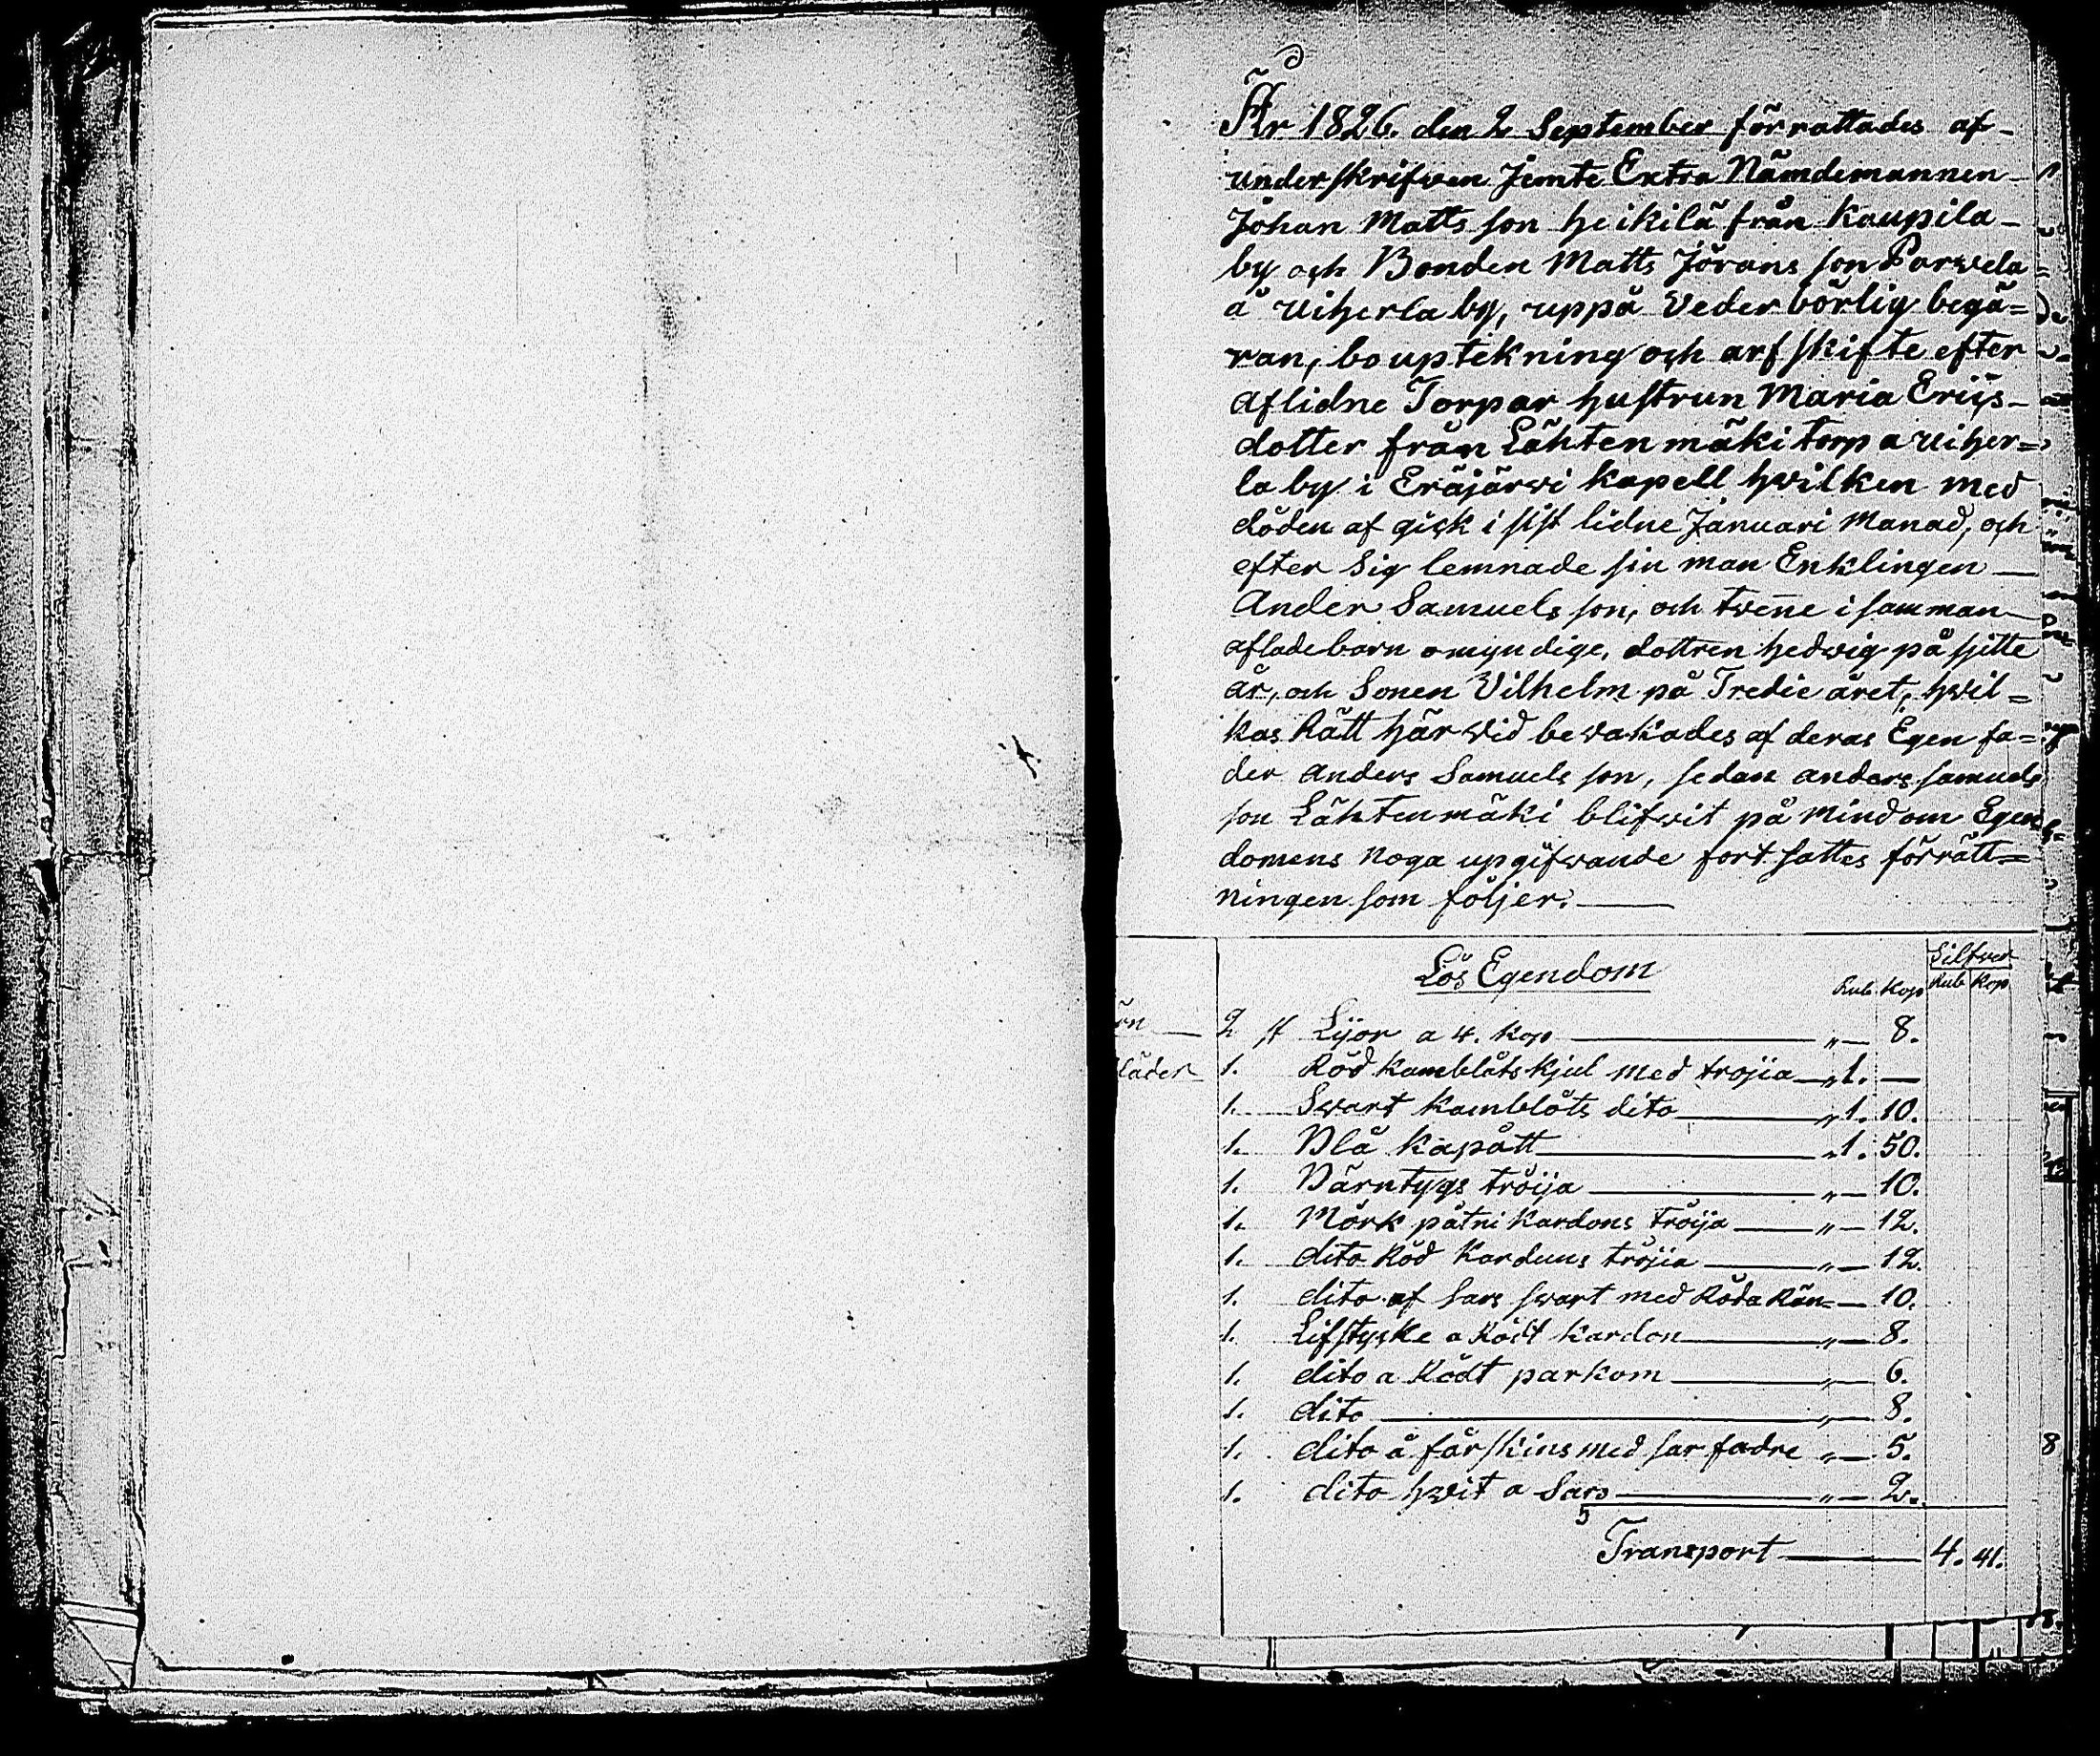 År 1826. den 2 September förrattades af-
underskrifwen Jemte Extra Nämdemannen
Johan Matts son heikilä från Kaupila-
by och Bonden Matts Jörans son Parwela
å Uiherla by, uppå Vederbörlig begä=
ran, bouptekning och arfskifte efter
aflidne Torpar hustrun Maria Eriis-
dotter från Lähtenmäki torp a Uiher=
la by i Eräjärwi kapell hwilken med
döden af gick i sist lidne Januari Manad, och
efter Sig lemnade sin man Enklingen
Ander Samuels son, och twene i samman
aflade barn omyndige, dottren hedwig på sjitte
år, och Sonen Vilhelm på Tredie året, hwil=
kas Rätt härwid bewakades af deras Egen fa=
der Anders Samuels son, sedan anders samuels
son Lähtenmäki blifwit på mindom Egen
domens noga upgifwande fort sattes förrätt=
ningen som följer.
Lös Egendom
Silfwer
Rub Kop Rub Kop
2 st Lyor a 4. kop — „ — 8.
läder 1. Röd kamblåts kjul med tröjia — „ 1. —
1. Swart kamblåts dito — „ 1. 10.
1. Blå kapått — „ 1. 50.
1. Bärntygs tröija — „ — 10.
1. Mörk påtni kardons tröija — „ — 12.
1. dito Röd Karduns tröjia — „ — 12.
1. dito af Sars swart med Röda Rän= — 10.
1. Lifstycke a Rödt kardon — „ — 8.
1. dito a Rödt parkom — „ — 6.
1. dito — „ — 8.
1. dito å fårskins med sar fodre „ — 5.
1. dito hwit a Sars — „ — 2.
5
Transport — 4. 41.
8